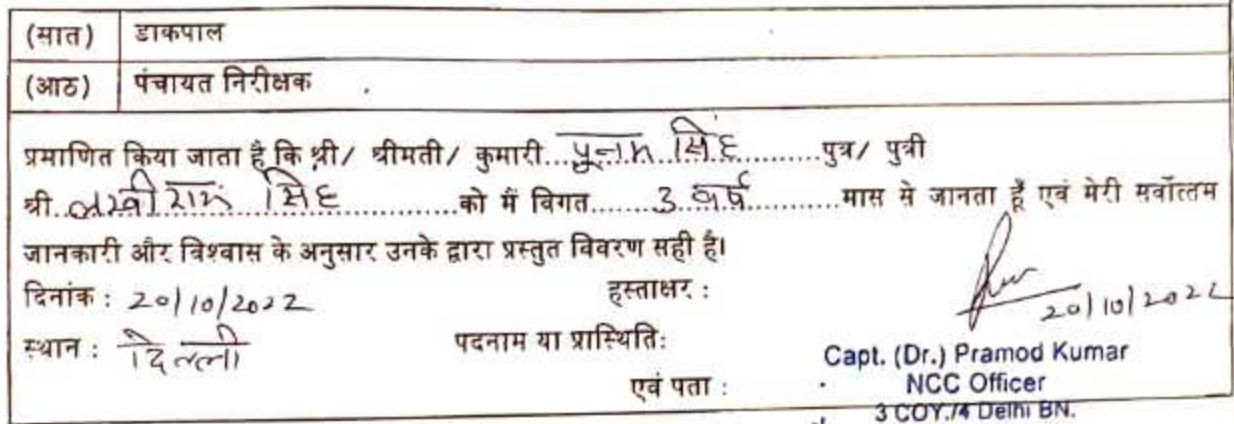 (सात) डाकपाल
(आठ) पंचायत निरीक्षक .
प्रमाणित किया जाता है कि श्री/ श्रीमती/ कुमारी...पुनम सिंह..........पुत्र/ पुत्री
श्री..लखीराम सिंह..............को मैं विगत.......3 वर्ष............मास से जानता हूँ एवं मेरी सर्वोत्तम
जानकारी और विश्वास के अनुसार उनके द्वारा प्रस्तुत विवरण सही है।
दिनांक : 20/10/2022 हस्ताक्षर : 20/10/2022
स्थान : दिल्ली पदनाम या प्रास्थिति: Capt. (Dr.) Pramod Kumar
एवं पता : NCC Officer
3 COY./4 Delhi BN.